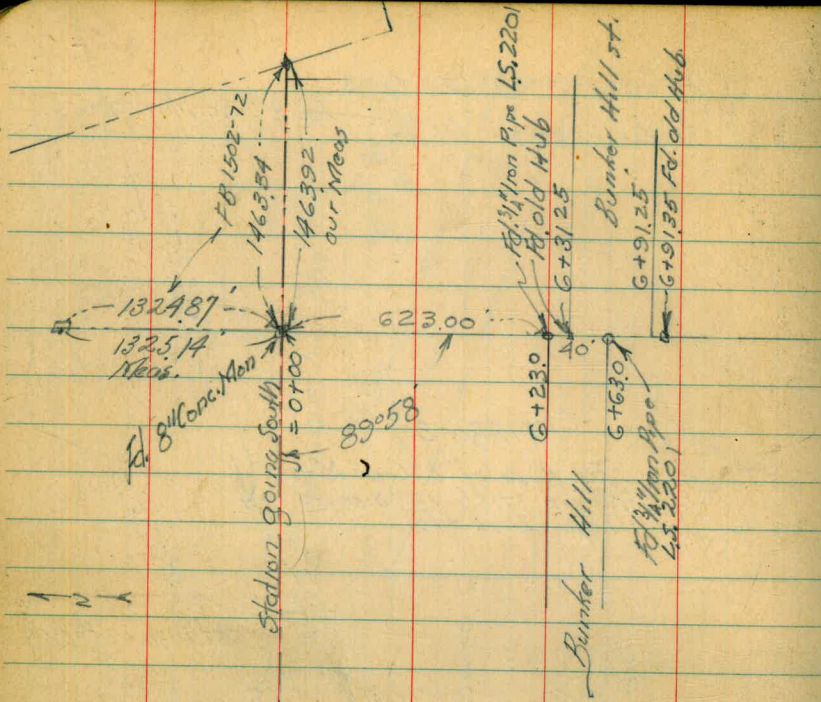 FB 1502-72
1463.84
1463.92
our Meas
1324.87'
1325.14
Meas.
Fd. 8" Conc. Mon
Station going South
= 0+00
89°58'
623.00'
Fd. 3/4" Iron Pipe L.S. 2201
Fd. old Hub
6+31.25
Bunker Hill st.
6+91.25
6+91.35 Fd. old Hub
6+23.0
40'
6+63.0
Fd 3/4" Iron Pipe
L.S. 2201
Bunker Hill
N